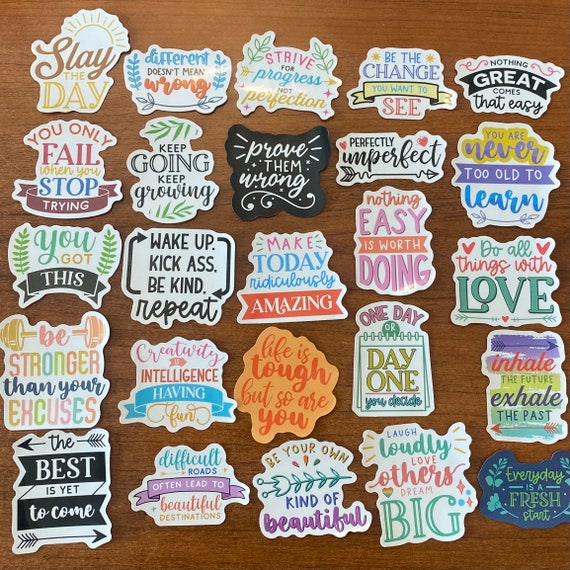 Slay
THE
DAY
different
DOESN'T MEAN
wrong
STRIVE
FOR
progress
NOT
perfection
BE THE
CHANGE
YOU WANT TO
SEE
NOTHING
GREAT
COMES
that easy
YOU ONLY
FAIL
when you
STOP
TRYING
KEEP
GOING
KEEP
growing
prove
THEM
wrong
PERFECTLY
imperfect
YOU ARE
never
TOO OLD TO
learn
You
GOT
THIS
WAKE UP.
KICK ASS.
BE KIND.
repeat
MAKE
TODAY
ridiculously
AMAZING
nothing
EASY
IS WORTH
DOING
Do all
things with
LOVE
be
STRONGER
than your
EXCUSES
Creativity
IS
INTELLIGENCE
HAVING
fun
life is
tough
but so are
you
ONE DAY
OR
DAY
ONE
you decide
inhale
THE FUTURE
exhale
THE PAST
the
BEST
IS YET
to come
difficult
ROADS
OFTEN LEAD TO
beautiful
DESTINATIONS
BE YOUR OWN
KIND OF
beautiful
LAUGH
loudly
LOVE
others
DREAM
BIG
Everyday
IS A
FRESH
start